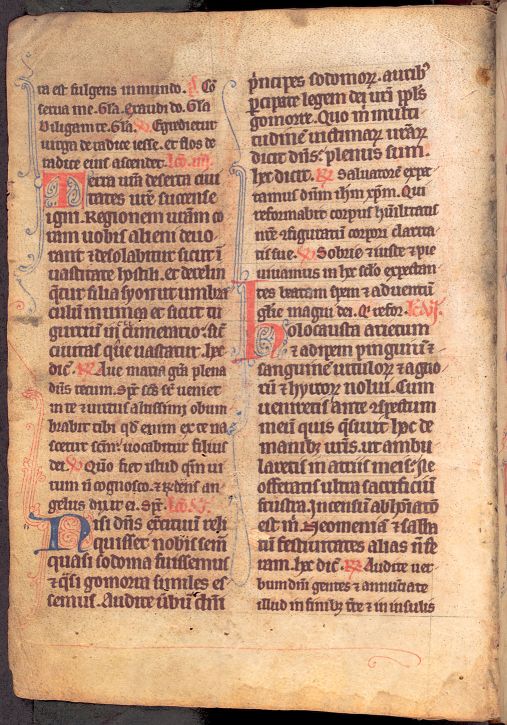 ta est fulgens in mundo. R Co
serua me. Gla. Exaudi do. Gla
Biligam te. Gla. V Egredietur
uirga de radice iesse. et flos de
radice eius ascendet. Lco. iiij.
Terra ura deserta ciui
tates ure succense
igni. Regionem uram co
ram uobis alieni deuo
rant & desolabitur sicut i
uastitate hostili. et derelin
qetur filia syon ut umbra
culu in uinea et sicut tu
guriu i cucumerario. sic
ciuitas que uastatur. hec
dic. R Aue maria gra plena
dns tecum. Spc scs i te ueniet
in te & uirtus altissimi obum
brabit tibi qd enim ex te na
scetur scm uocabitur filius
dei. V Quo fiet istud qm ui
rum n cognosco. & rndens an
gelus dixit ei. Spc. Lco. v.
Nisi dns exercituu reli
quisset nobis sem
quasi sodoma fuissemus
& qsi gomorra similes es
semus. Audite ubu dni
pncipes sodomoꝝ. aurib9
pcipite legem dei uri ppls
gomorre. Quo m multi
tudine uictimaꝝ uraꝝ
dicit dns. plenus sum.
hec dicit. R Saluatorem expe
tamus dnm ihm xpm. Qui
reformabit corpus humilitatis
nre 9figuratu corpori clarita
tis sue. V Sobrie & iuste & pie
uiuamus in hoc sclo expectan
tes beatam spem & aduentu
glie magni dei. Q refor. Lco. vj.
Holocausta arietum
& adipem pinguiu &
sanguinem uituloꝝ & agno
ru & hyrcoꝝ nolui. Cum
ueneritis ante 9spectum
meu quis qsiuit hec de
manibꝫ uris. ut ambu
laretis in atriis meis. Ne
offeratis ultra sacrificiu
frustra. Incensu abhiatio
est m. Neomenia & sabba
tu & festiuitates alias n fe
ram. hec dic. R Audite uer
bum dni gentes & annuciate
illud in finibꝫ tre & in insulis